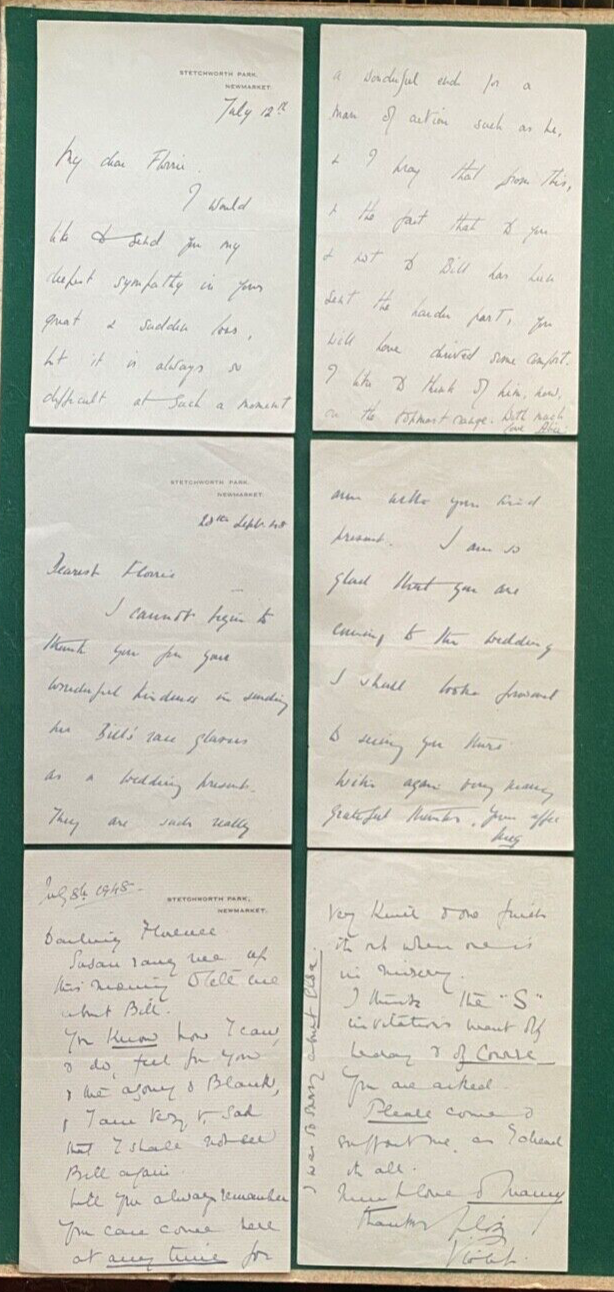 STETCHWORTH PARK,
NEWMARKET.
July 12th
My dear Florrie.
I would
like to send you my
deepest sympathy in your
great & sudden loss,
but it is always so
difficult at such a moment
a wonderful end for a
man of action such as he,
& I pray that from this,
& the fact that to you
& not to Bill has been
sent the harder part, you
will have derived some comfort.
I like to think of him, now,
on the topmost range. With much
love
STETCHWORTH PARK,
NEWMARKET.
28th Sept. 48
Dearest Florrie
I cannot begin to
thank you for your
wonderful kindness in sending
me Bill's race glasses
as a wedding present.
They are such really
your kind
present. I am so
glad that you are
coming to the wedding
I shall look forward
to seeing you there
With again very many
grateful thanks. Your affec
July 8th 1948
STETCHWORTH PARK,
NEWMARKET.
Darling Florence
Susan rang me up
this morning to tell me
about Bill.
You Know how I care,
& do, feel for you
& the agony & Blank,
& I am very v. sad
that I shall not see
Bill again.
Will you always remember
you can come here
at any time for
very Kind
it out when one is
in misery.
I think the "S"
invitations went off
today & of Course
You are asked
Please come &
support me, as I dread
it all.
Much love & many
thanks
Violet.
I was so sorry about